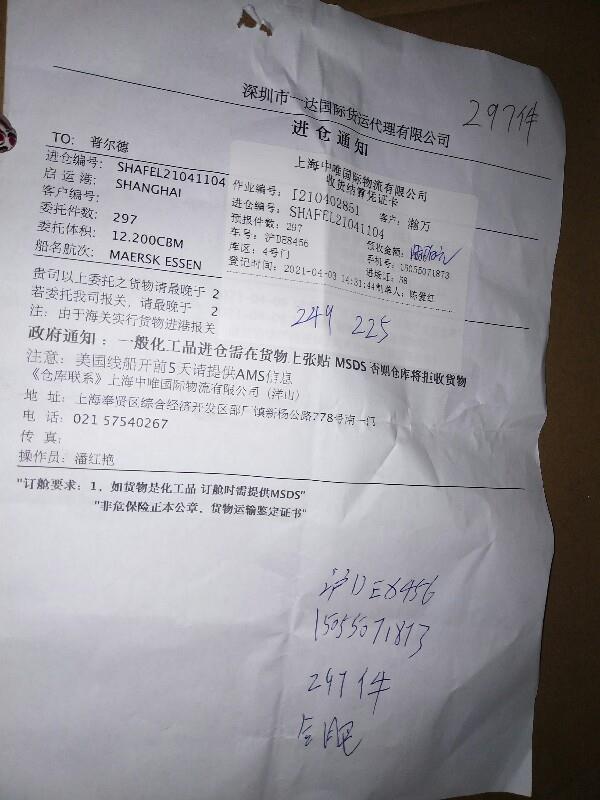 297件
深圳市一达国际货运代理有限公司
进仓通知
TO: 普尔德
进仓编号: SHAFEL21041104
启运港: SHANGHAI
客户编号:
委托件数: 297
委托体积: 12.200CBM
船名航次: MAERSK ESSEN
上海中唯国际物流有限公司
收货结算凭证卡
作业编号: I210402851 客户: 瀚万
进仓编号: SHAFEL21041104
预报件数: 297 预收金额:
车号: 沪DE8456 手机号: 15055071873
库区: 4号门 进场江: 58
登记时间: 2021-04-03 14:31:44 机单人: 陈爱红
249 225
贵司以上委托之货物请最晚于 2
若委托我司报关, 请最晚于 2
注: 由于海关实行货物进港报关
政府通知: 一般化工品进仓需在货物上张贴 MSDS 否则仓库将拒收货物
注意: 美国线船开前5天请提供AMS信息
《仓库联系》上海中唯国际物流有限公司 (洋山)
地 址: 上海奉贤区综合经济开发区邵厂镇新杨公路778号南一门
电 话: 021 57540267
传 真:
操作员: 潘红艳
"订舱要求: 1、如货物是化工品 订舱时需提供MSDS"
"非危保险正本公章、货物运输鉴定证书"
沪DE8456
15055071873
297件